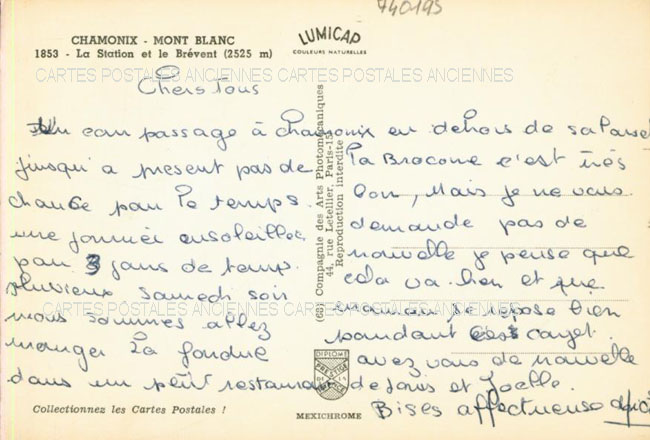 740195
CHAMONIX - MONT BLANC
1853 - La Station et le Brévent (2525 m)
LUMICAP
COULEURS NATURELLES
CARTES POSTALES ANCIENNES CARTES POSTALES ANCIENNES
Chers Tous
passage à chamonix en dehors de
jusqu'a present pas de
chance par le temps.
une journée ensoleillée
par 3 jours de temp.
pluvieux samedi soir
nous sommes allez
manger la fondue
dans un petit restaurant
la Bracone c'est très
bon, Mais je ne vous
demande pas de
nouvelle je pense que
cela va bien et que
maman se repose bien
pendant ces conget.
avez vous de nouvelle
de Joelle.
Bises affectueuse
CARTES POSTALES ANCIENNES CARTES POSTALES ANCIENNES
(68) Compagnie des Arts Photomécaniques
44, rue Letellier, Paris-15
Reproduction interdite
DIPLOME
PRESTIGE
Collectionnez les Cartes Postales !
MEXICHROME